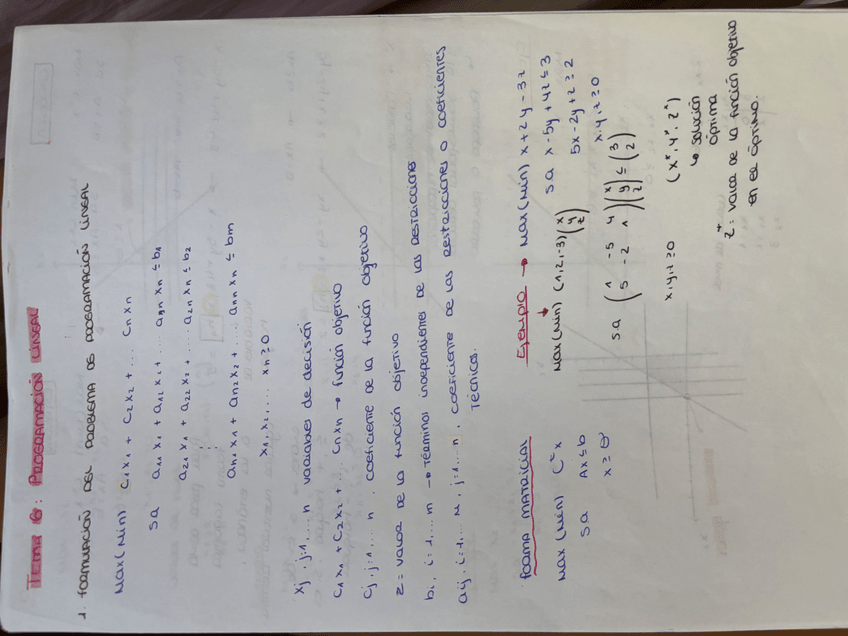 TEMA 6: PROGRAMACIÓN LINEAL
1. FORMULACIÓN DEL PROBLEMA DE PROGRAMACIÓN LINEAL
MAX (MIN) C1X1 + C2X2 + ... CnXn
SA a11 X1 + a12 X2 + .... a1n Xn ≤ b1
a21 X1 + a22 X2 + ... a2n Xn ≤ b2
⋮
an1 X1 + an2 X2 + .... ann Xn ≤ bm
X1, X2, ... Xn ≥ 0
Xj, j:1, ... n variables de decisión
C1X1 + C2X2 + ... CnXn → función objetivo
Cj, j:1, ... n, coeficiente de la función objetivo
Z = valor de la función objetivo
bi, i = 1, ... m → Términos independientes de las restricciones
aij, i:1, ... M, j:1, ... n, coeficiente de las restricciones o coeficientes
técnicos.
FORMA MATRICIAL
MAX (MIN) Cᵗ X
SA AX ≤ b
X ≥ θ
EJEMPLO → MAX (MIN) X + 2y - 3z
SA X - 5y + 4z ≤ 3
5X - 2y + z ≥ 2
X, y, z ≥ 0
MAX (MIN) (1, 2, -3) (x y z)
SA (1 -5 4 / 5 -2 1) (x y z) ≤ (3 2)
X, y, z ≥ 0
(X*, Y*, Z*)
↳ Solución
óptima
Z* = valor de la función objetivo
en el óptimo.